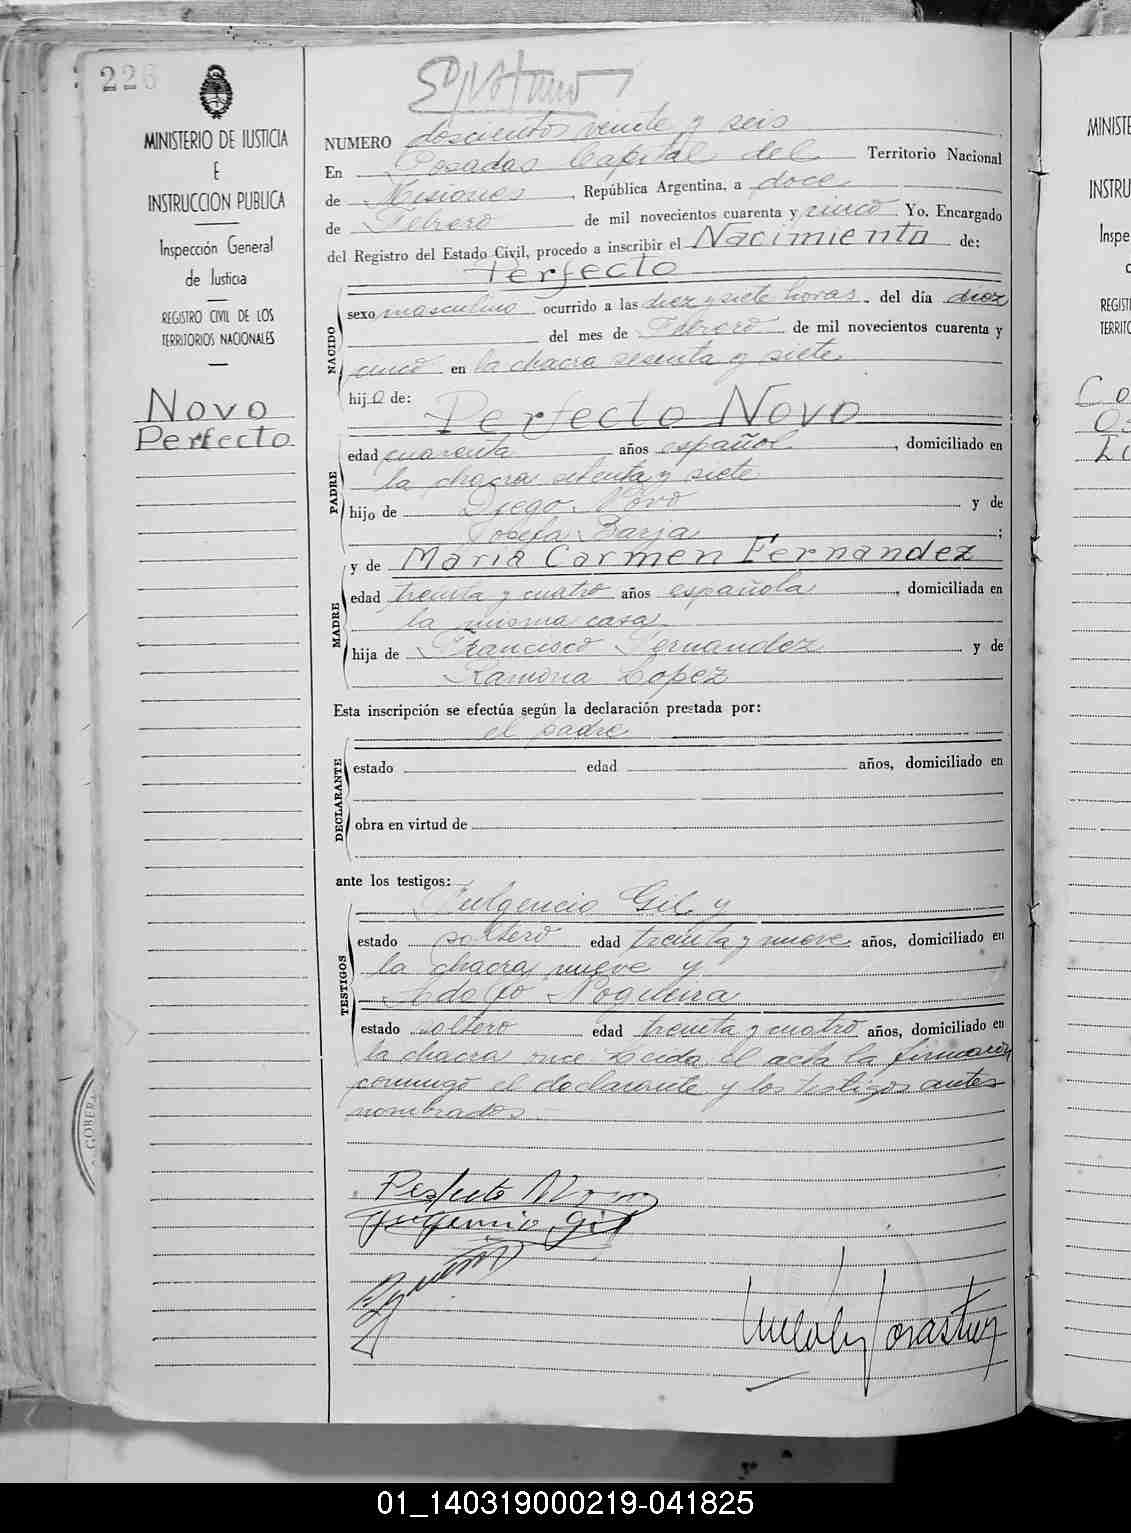 226
MINISTERIO DE JUSTICIA
E
INSTRUCCION PUBLICA
Inspección General
de Justicia
REGISTRO CIVIL DE LOS
TERRITORIOS NACIONALES
Novo
Perfecto
NUMERO doscientos veinte y seis
En Posadas Capital del Territorio Nacional
de Misiones, República Argentina, a doce
de Febrero de mil novecientos cuarenta y cinco Yo, Encargado
del Registro del Estado Civil, procedo a inscribir el Nacimiento de:
Perfecto
NACIDO
sexo masculino ocurrido a las diez y siete horas, del día diez
del mes de Febrero de mil novecientos cuarenta y
cinco en la chacra sesenta y siete
hijo de:
Perfecto Novo
PADRE
edad cuarenta años español, domiciliado en
la chacra setenta y siete
hijo de Diego Novo y de
Josefa Barja;
y de Maria Carmen Fernandez
MADRE
edad treinta y cuatro años española, domiciliada en
la misma casa
hija de Francisco Fernandez y de
Ramona Lopez
Esta inscripción se efectúa según la declaración prestada por:
el padre
DECLARANTE
estado edad años, domiciliado en
obra en virtud de
ante los testigos:
Fulgencio Gil y
TESTIGOS
estado soltero edad treinta y nueve años, domiciliado en
la chacra nueve y
Adolfo Nogueira
estado soltero edad treinta y cuatro años, domiciliado en
la chacra once. Leida el acta la firmaron
conmigo el declarante y los testigos antes
nombrados.
Perfecto Novo
Fulgencio Gil
MINISTE
INSTRU
Inspe
REGIST
TERRITO
GOBER
01_140319000219-041825